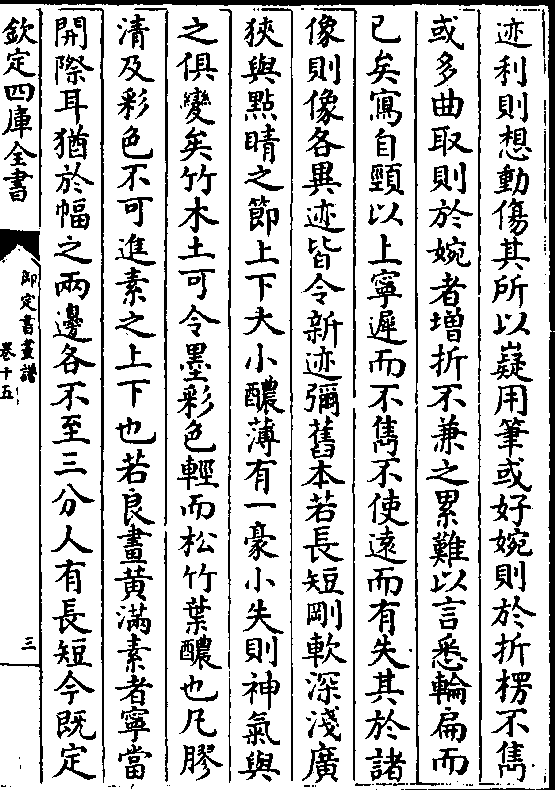 迹利則想動傷其所以嶷用筆或好婉則於折楞不雋
或多曲取則於婉者増折不兼之累難以言悉輪扁而
已矣寫自頸以上寧遲而不雋不使逺而有失其於諸
像則像各異迹皆令新迹彌舊本若長短剛軟深淺廣
狹與㸃睛之節上下大小醲薄有一豪小失則神氣與
之俱變矣竹木土可令墨彩色輕而松竹葉醲也凡膠
清及彩色不可進素之上下也若良畫黄滿素者寧當
開際耳猶於幅之兩邊各不至三分人有長短今既定
欽定四庫全書
御定書畫譜
卷十五
三